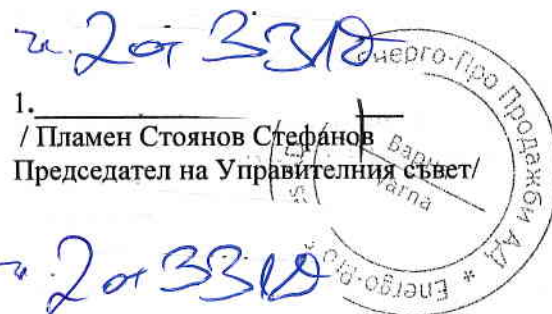 чл. 2 от ЗЗЛД
1.
/ Пламен Стоянов Стефанов
Председател на Управителния съвет/
Енерго-Про Продажби АД * Energo-Pro
Варна
Varna
чл. 2 от ЗЗЛД